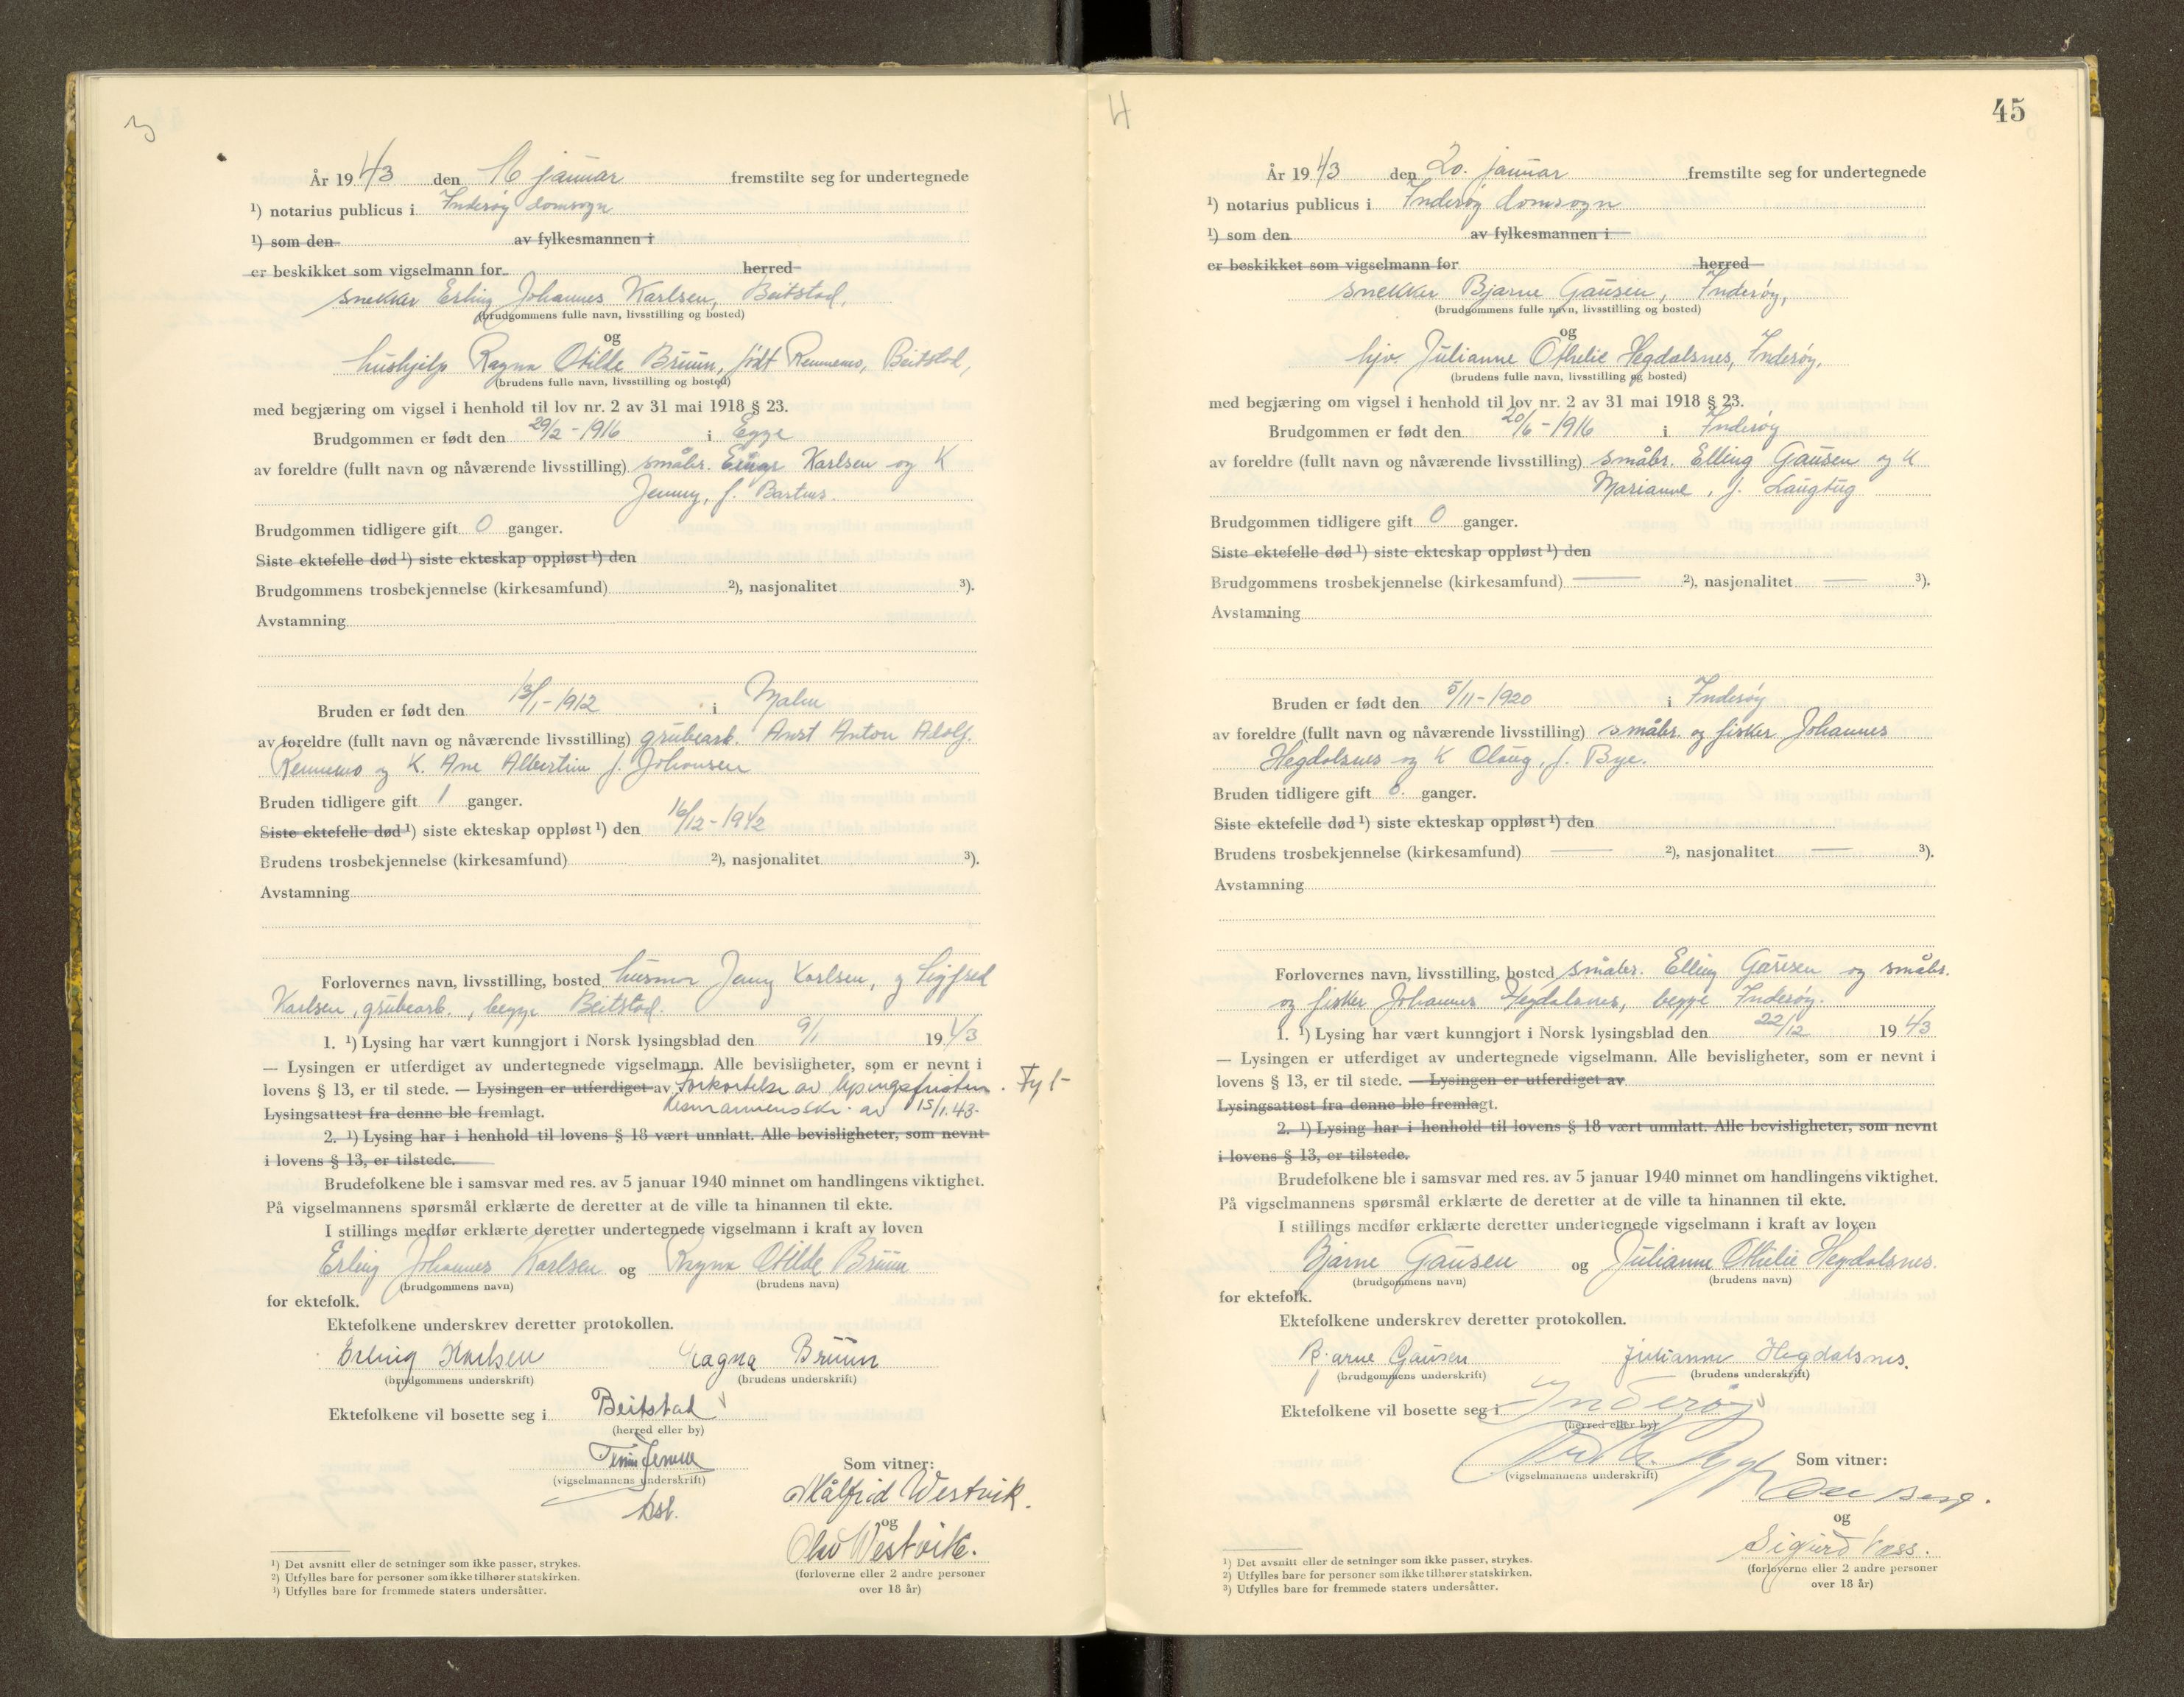 3
År 1943 den 16 januar fremstilte seg for undertegnede
¹) notarius publicus i Inderøy domsogn
¹) som den av fylkesmannen i
er beskikket som vigselmann for herred
snekker Erling Johannes Karlsen, Beitstad,
(brudgommens fulle navn, livsstilling og bosted)
og
hushjelp Ragna Otilde Bruun, født Rennemo, Beitstad,
(brudens fulle navn, livsstilling og bosted)
med begjæring om vigsel i henhold til lov nr. 2 av 31 mai 1918 § 23.
Brudgommen er født den 29/2-1916 i Egge
av foreldre (fullt navn og nåværende livsstilling) småbr. Karlsen og K
Jenny, f. Bartnes.
Brudgommen tidligere gift 0 ganger.
Siste ektefelle død ¹) siste ekteskap oppløst ¹) den
Brudgommens trosbekjennelse (kirkesamfund) ²), nasjonalitet ³).
Avstamning
Bruden er født den 13/1-1912 i Malm
av foreldre (fullt navn og nåværende livsstilling) grubearb. Anton Adolf
Rennemo og K. Ane Albertine f. Johansen
Bruden tidligere gift 1 ganger.
Siste ektefelle død ¹) siste ekteskap oppløst ¹) den 16/12-1942
Brudens trosbekjennelse (kirkesamfund) ²), nasjonalitet ³).
Avstamning
Forlovernes navn, livsstilling, bosted husmor Jenny Karlsen, og Sigfred
Karlsen, grubearb., begge Beitstad.
1. ¹) Lysing har vært kunngjort i Norsk lysingsblad den 9/1 1943
— Lysingen er utferdiget av undertegnede vigselmann. Alle bevisligheter, som er nevnt i
lovens § 13, er til stede. — Lysingen er utferdiget av Forkortelse av lysingsfristen. Fyl-
Lysingsattest fra denne ble fremlagt. kesmannens skr. av 15/1.43.
2. ¹) Lysing har i henhold til lovens § 18 vært unnlatt. Alle bevisligheter, som nevnt
i lovens § 13, er tilstede.
Brudefolkene ble i samsvar med res. av 5 januar 1940 minnet om handlingens viktighet.
På vigselmannens spørsmål erklærte de deretter at de ville ta hinannen til ekte.
I stillings medfør erklærte deretter undertegnede vigselmann i kraft av loven
Erling Johannes Karlsen og Ragna Otilde Bruun
(brudgommens navn) (brudens navn)
for ektefolk.
Ektefolkene underskrev deretter protokollen.
Erling Karlsen Ragna Bruun
(brudgommens underskrift) (brudens underskrift)
Ektefolkene vil bosette seg i Beitstad
(herred eller by)
Som vitner:
(vigselmannens underskrift)
Målfrid Westvik.
og
Olav Westvik.
(forloverne eller 2 andre personer
over 18 år)
¹) Det avsnitt eller de setninger som ikke passer, strykes.
²) Utfylles bare for personer som ikke tilhører statskirken.
³) Utfylles bare for fremmede staters undersåtter.
4
45
År 1943 den 20. januar fremstilte seg for undertegnede
¹) notarius publicus i Inderøy domsogn
¹) som den av fylkesmannen i
er beskikket som vigselmann for herred
snekker Bjarne Gausen, Inderøy,
(brudgommens fulle navn, livsstilling og bosted)
og
hjv. Julianne Othelie Hegdalsnes, Inderøy,
(brudens fulle navn, livsstilling og bosted)
med begjæring om vigsel i henhold til lov nr. 2 av 31 mai 1918 § 23.
Brudgommen er født den 20/6-1916 i Inderøy
av foreldre (fullt navn og nåværende livsstilling) småbr. Elling Gausen og K
Marianne, f. Langtug
Brudgommen tidligere gift 0 ganger.
Siste ektefelle død ¹) siste ekteskap oppløst ¹) den
Brudgommens trosbekjennelse (kirkesamfund) — ²), nasjonalitet — ³).
Avstamning
Bruden er født den 5/11-1920 i Inderøy
av foreldre (fullt navn og nåværende livsstilling) småbr. og fisker Johannes
Hegdalsnes og K Olaug, f. Bye.
Bruden tidligere gift 0. ganger.
Siste ektefelle død ¹) siste ekteskap oppløst ¹) den
Brudens trosbekjennelse (kirkesamfund) — ²), nasjonalitet — ³).
Avstamning
Forlovernes navn, livsstilling, bosted småbr. Elling Gausen og småbr.
og fisker Johannes Hegdalsnes, begge Inderøy.
1. ¹) Lysing har vært kunngjort i Norsk lysingsblad den 22/12 1943
— Lysingen er utferdiget av undertegnede vigselmann. Alle bevisligheter, som er nevnt i
lovens § 13, er til stede. — Lysingen er utferdiget av
Lysingsattest fra denne ble fremlagt.
2. ¹) Lysing har i henhold til lovens § 18 vært unnlatt. Alle bevisligheter, som nevnt
i lovens § 13, er tilstede.
Brudefolkene ble i samsvar med res. av 5 januar 1940 minnet om handlingens viktighet.
På vigselmannens spørsmål erklærte de deretter at de ville ta hinannen til ekte.
I stillings medfør erklærte deretter undertegnede vigselmann i kraft av loven
Bjarne Gausen og Julianne Othelie Hegdalsnes.
(brudgommens navn) (brudens navn)
for ektefolk.
Ektefolkene underskrev deretter protokollen.
Bjarne Gausen Julianne Hegdalsnes.
(brudgommens underskrift) (brudens underskrift)
Ektefolkene vil bosette seg i Inderøy
(herred eller by)
Som vitner:
(vigselmannens underskrift)
og
Sigurd
(forloverne eller 2 andre personer
over 18 år)
¹) Det avsnitt eller de setninger som ikke passer, strykes.
²) Utfylles bare for personer som ikke tilhører statskirken.
³) Utfylles bare for fremmede staters undersåtter.